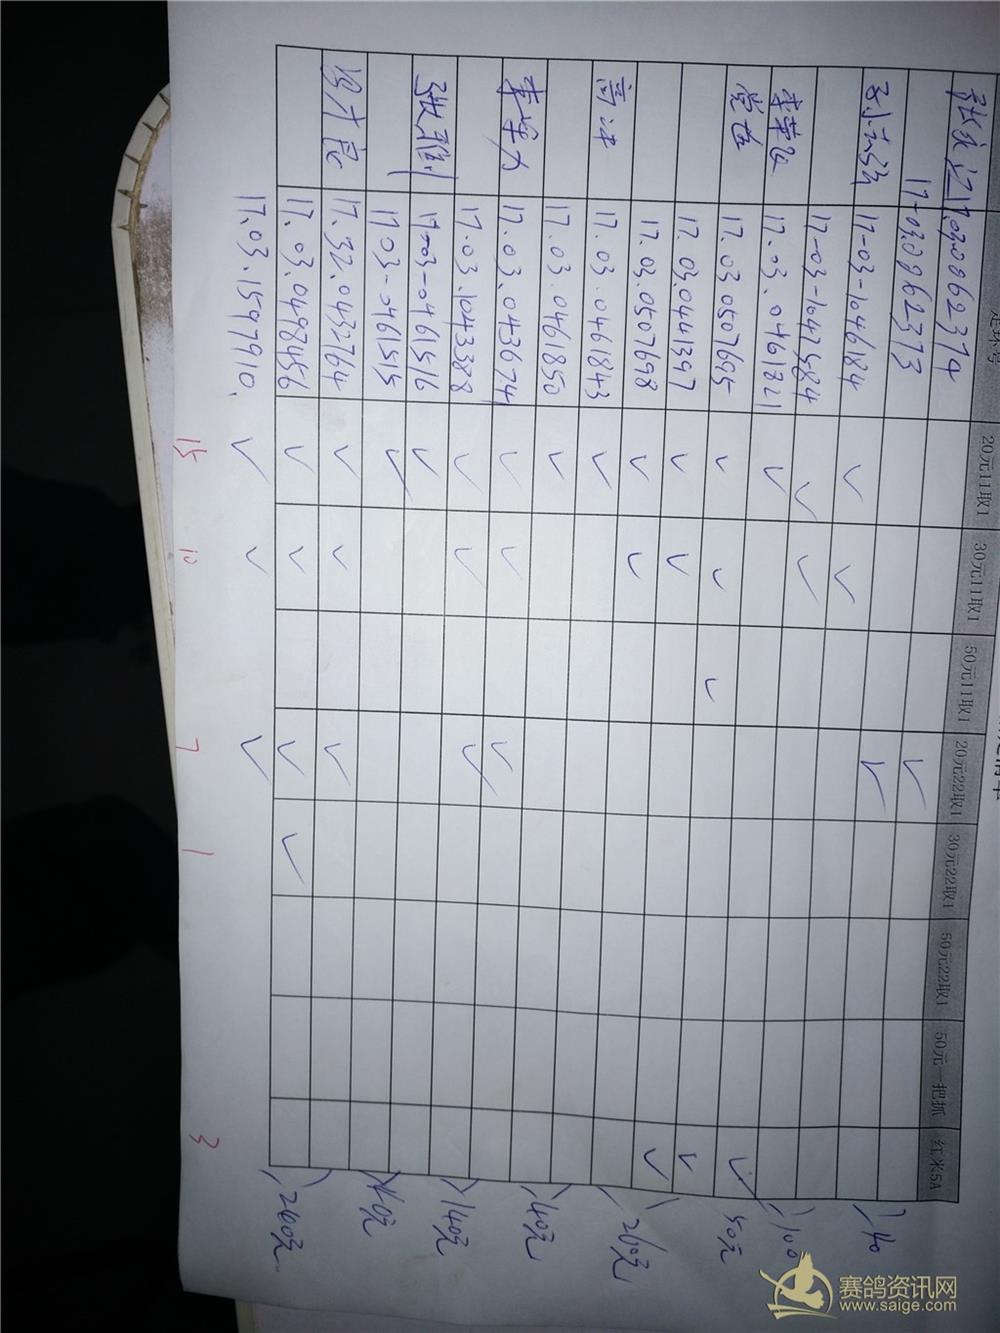 足环号 20元11取1 30元11取1 50元11取1 20元22取1 30元22取1 50元22取1 50元一把抓 红米5A
17.03.0062374 ✓
17-03.0062373 ✓
17-03-1046184 ✓ ✓ 140
17-03-1047584 ✓ ✓
李荣 17.03.0461821 ✓ 100
党 17.03 0507695 ✓ ✓ ✓ ✓ 50元
17.03.0441397 ✓ ✓ ✓
17.03.0507698 ✓ ✓ ✓ 260元
高冰 17.03.0461843 ✓
17.03.0461850 ✓ 40元
李军 17.03.0436741 ✓ ✓ ✓
17.03.1043388 ✓ ✓ ✓ 140元
张 17-03-0461516 ✓
1703-0461515 ✓ 40元
17.32.0432764 ✓ ✓ ✓
17.03.0478456 ✓ ✓ ✓ ✓ 240元
17.03.1597910. ✓ ✓ ✓
15 10 7 1 3
赛鸽资讯网
www.saige.com